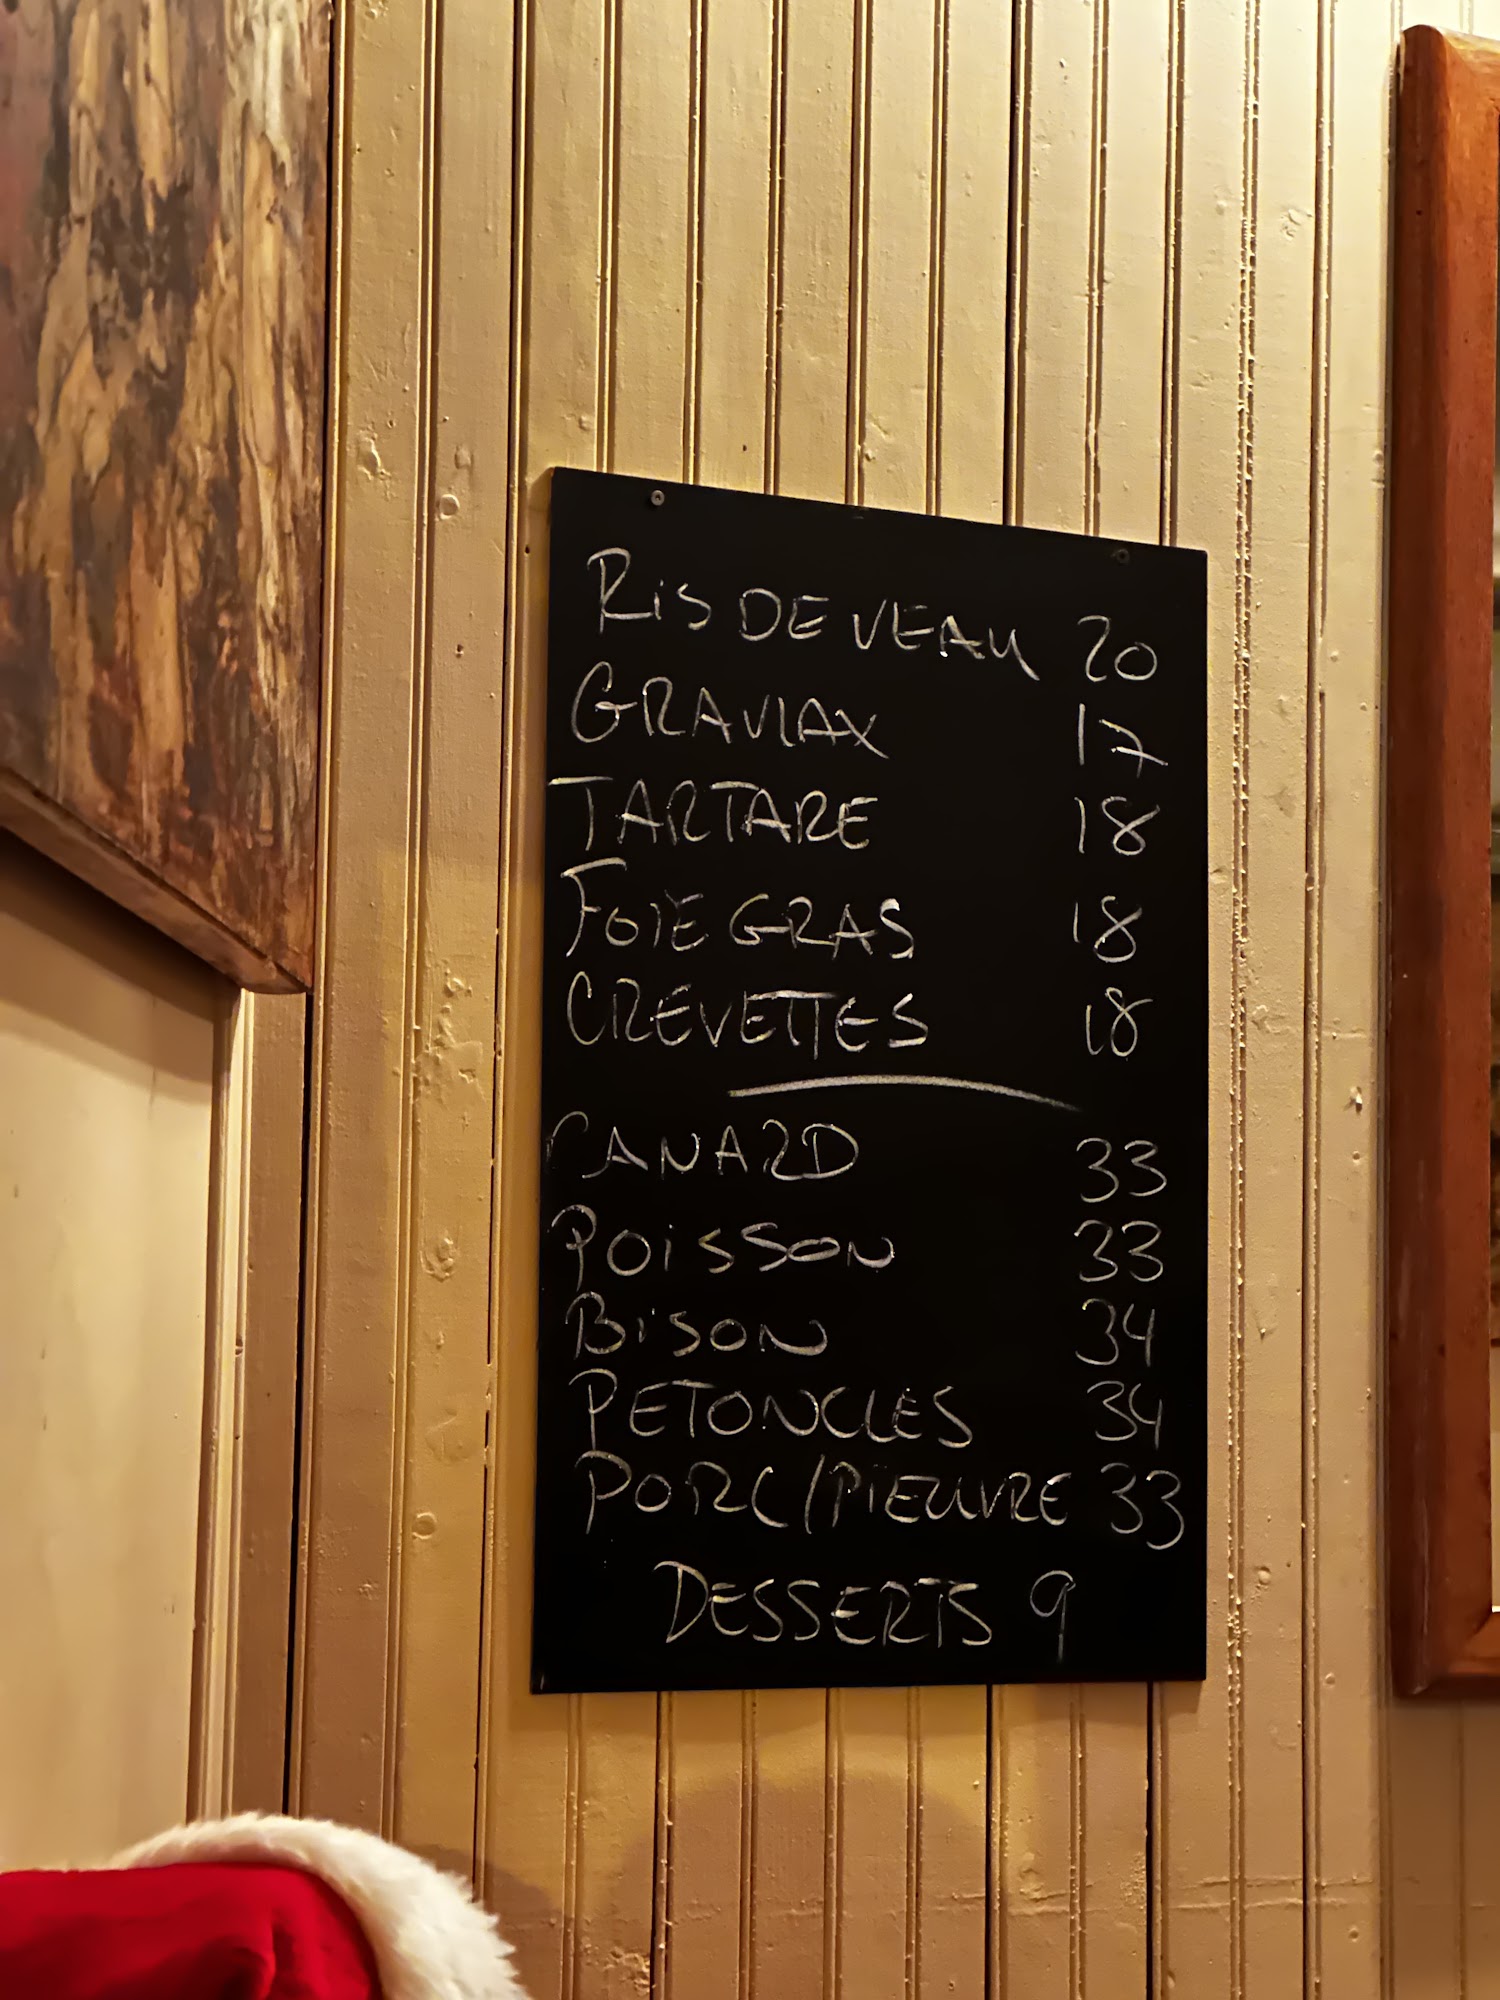 RIS DE VEAU 20
GRAVLAX 17
TARTARE 18
FOIE GRAS 18
CREVETTES 18
CANARD 33
POISSON 33
BISON 34
PETONCLES 34
PORC/PIEUVRE 33
DESSERTS 9